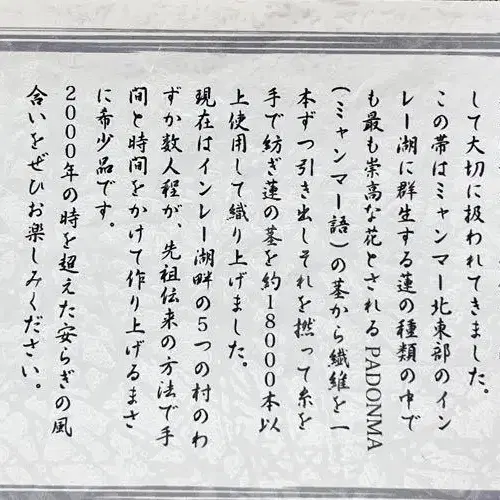 して大切に扱われてきました。
この帯はミャンマー北東部のイン
レー湖に群生する蓮の種類の中で
も最も崇高な花とされるPADONMA
(ミャンマー語)の茎から繊維を一
本ずつ引き出しそれを撚って糸を
手で紡ぎ蓮の茎を約18000本以
上使用して織り上げました。
現在はインレー湖畔の5つの村のわ
ずか数人程が、先祖伝来の方法で手
間と時間をかけて作り上げるまさ
に希少品です。
2000年の時を超えた安らぎの風
合いをぜひお楽しみください。